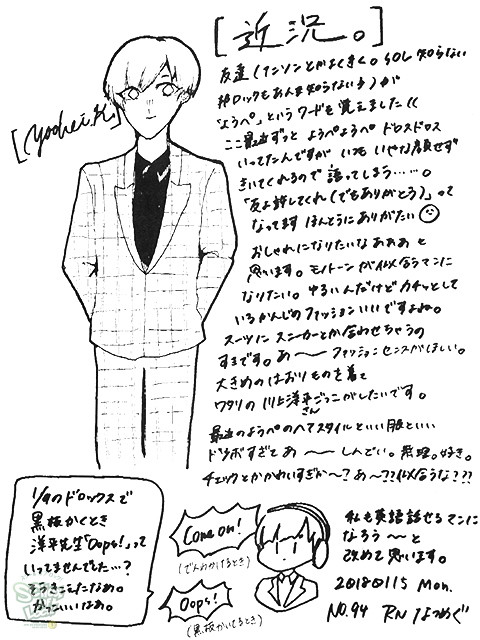 [近況。]
[yohei.K]
友達(アニソンとかよくきく。SOL 知らない
邦ロックもあんま知らない子)が
「ようぺ」というワードを覚えました((
ここ最近ずっと ようぺようぺ ドロスドロス
いってたんですが いつも いやな顔せず
きいてくれるので 語ってしまう……。
「友よ許してくれ(でもありがとう)」って
なってます ほんとうにありがたい
おしゃれになりたいなあああ と
思います。モノトーンが似合うマンに
なりたい。ゆるいんだけどカチッとして
いるかんじのファッションいいですよね。
スーツに スニーカーとか合わせちゃうの
すきです。あ〜〜ファッションセンスがほしい。
大きめのはおりものを着て
ワタリの川上洋平さんごっこがしたいです。
最近のようぺのヘアスタイルといい服といい
ドツボすぎてあ〜〜しんどい。無理。好き。
チェックとかかわいすぎか〜?あ〜??似合うな???
1/9のドロックスで
黒板かくとき
洋平先生「Oops!」って
いってませんでした…?
そうきこえたなあ。
かっこいいなあ。
Come on!
(でんわかけるとき)
Oops!
(黒板かいてるとき)
私も英語話せるマンに
なろう〜と
改めて思います。
20180115 Mon.
NO.94 RN なつめぐ